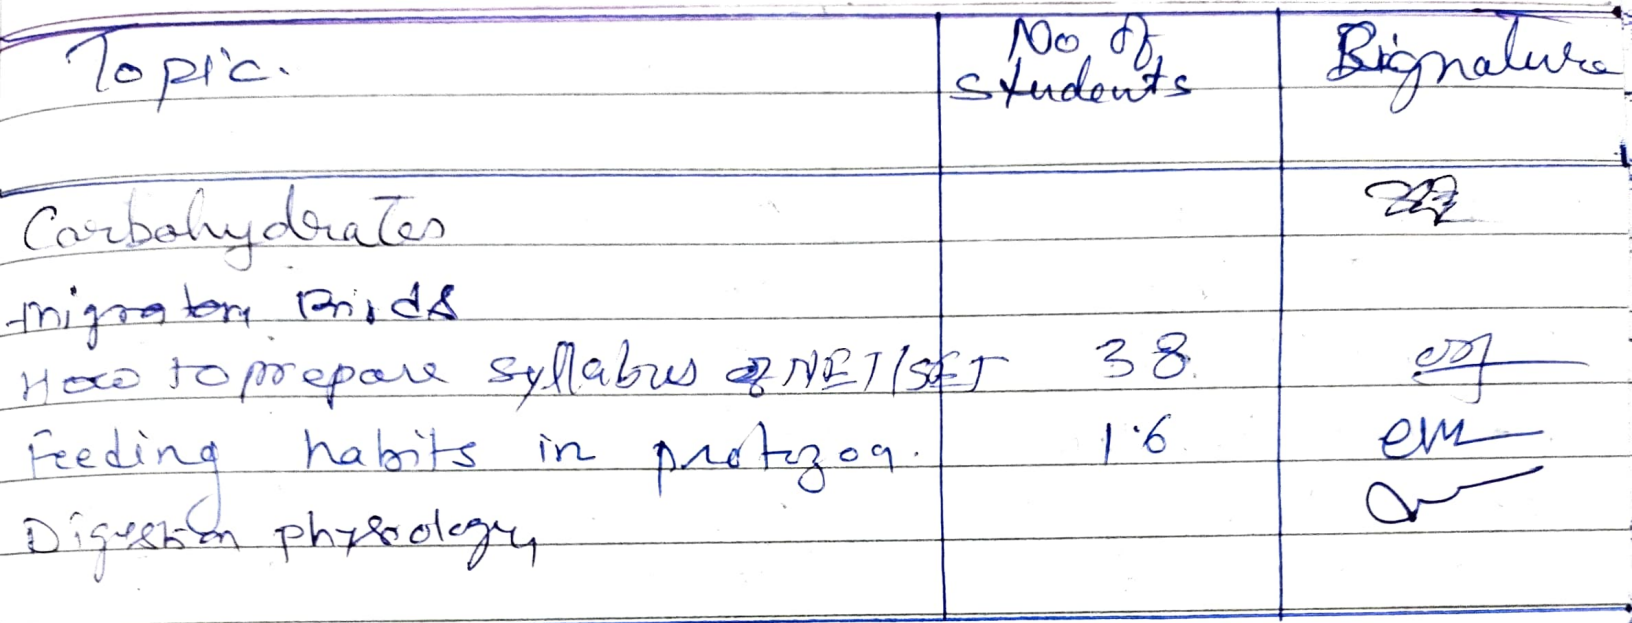 Topic. No. of students Signature
Carbohydrates
migratory Birds
How to prepare syllabus of NET/SET 38.
Feeding habits in protozoa. 16
Digestion physiology